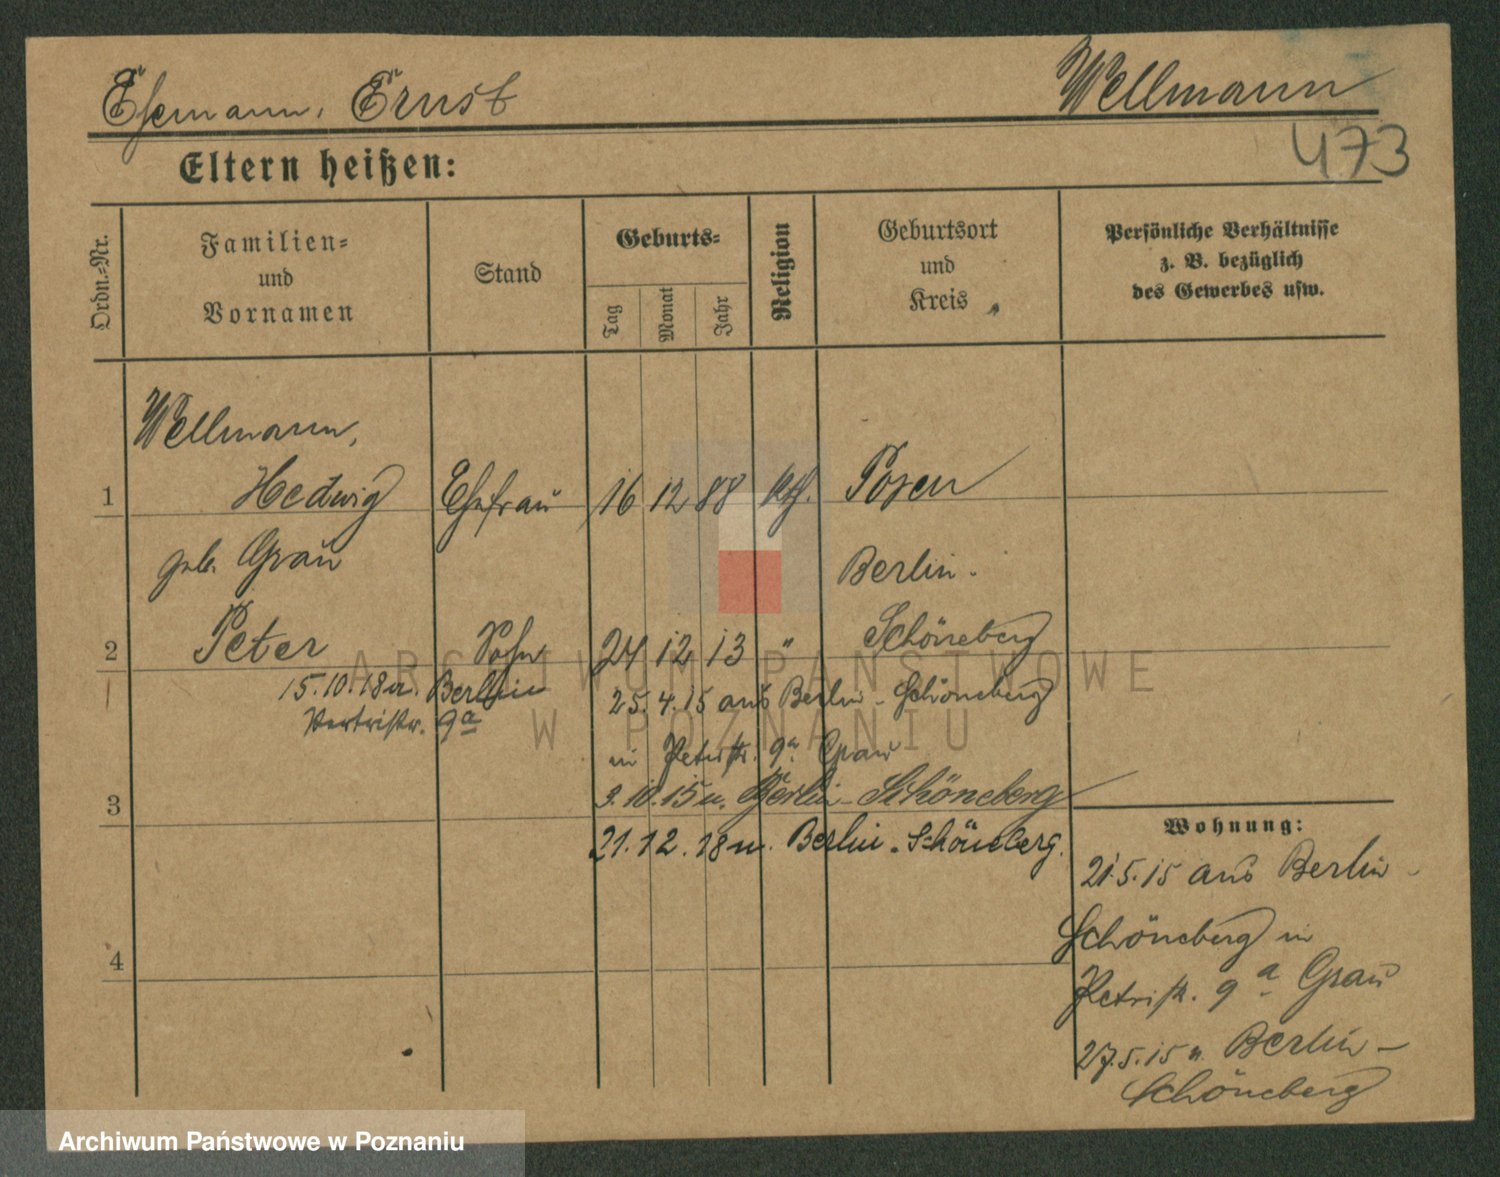 Ehemann, Ernst
Wellmann
473
Eltern heißen:
Ordn.-Nr.
Familien-
und
Vornamen
Stand
Geburts-
Tag
Monat
Jahr
Religion
Geburtsort
und
Kreis
Persönliche Verhältnisse
z. B. bezüglich
des Gewerbes usw.
Wellmann,
1 Hedwig Ehefrau 16 12 88 kth. Posen
geb. Grau Berlin-
2 Peter Sohn 24 12 13 " Schöneberg
15.10.18 a. Berlin
9a
25.4.15 aus Berlin-Schöneberg
in Petristr. 9a Grau
3
3.10.15 n. Berlin-Schöneberg
21.12.18 n. Berlin-Schöneberg.
4
Wohnung:
21.5.15 aus Berlin-
Schöneberg in
Petristr. 9a Grau
27.5.15 n. Berlin-
Schöneberg
ARCHIWUM PAŃSTWOWE
W POZNANIU
Archiwum Państwowe w Poznaniu